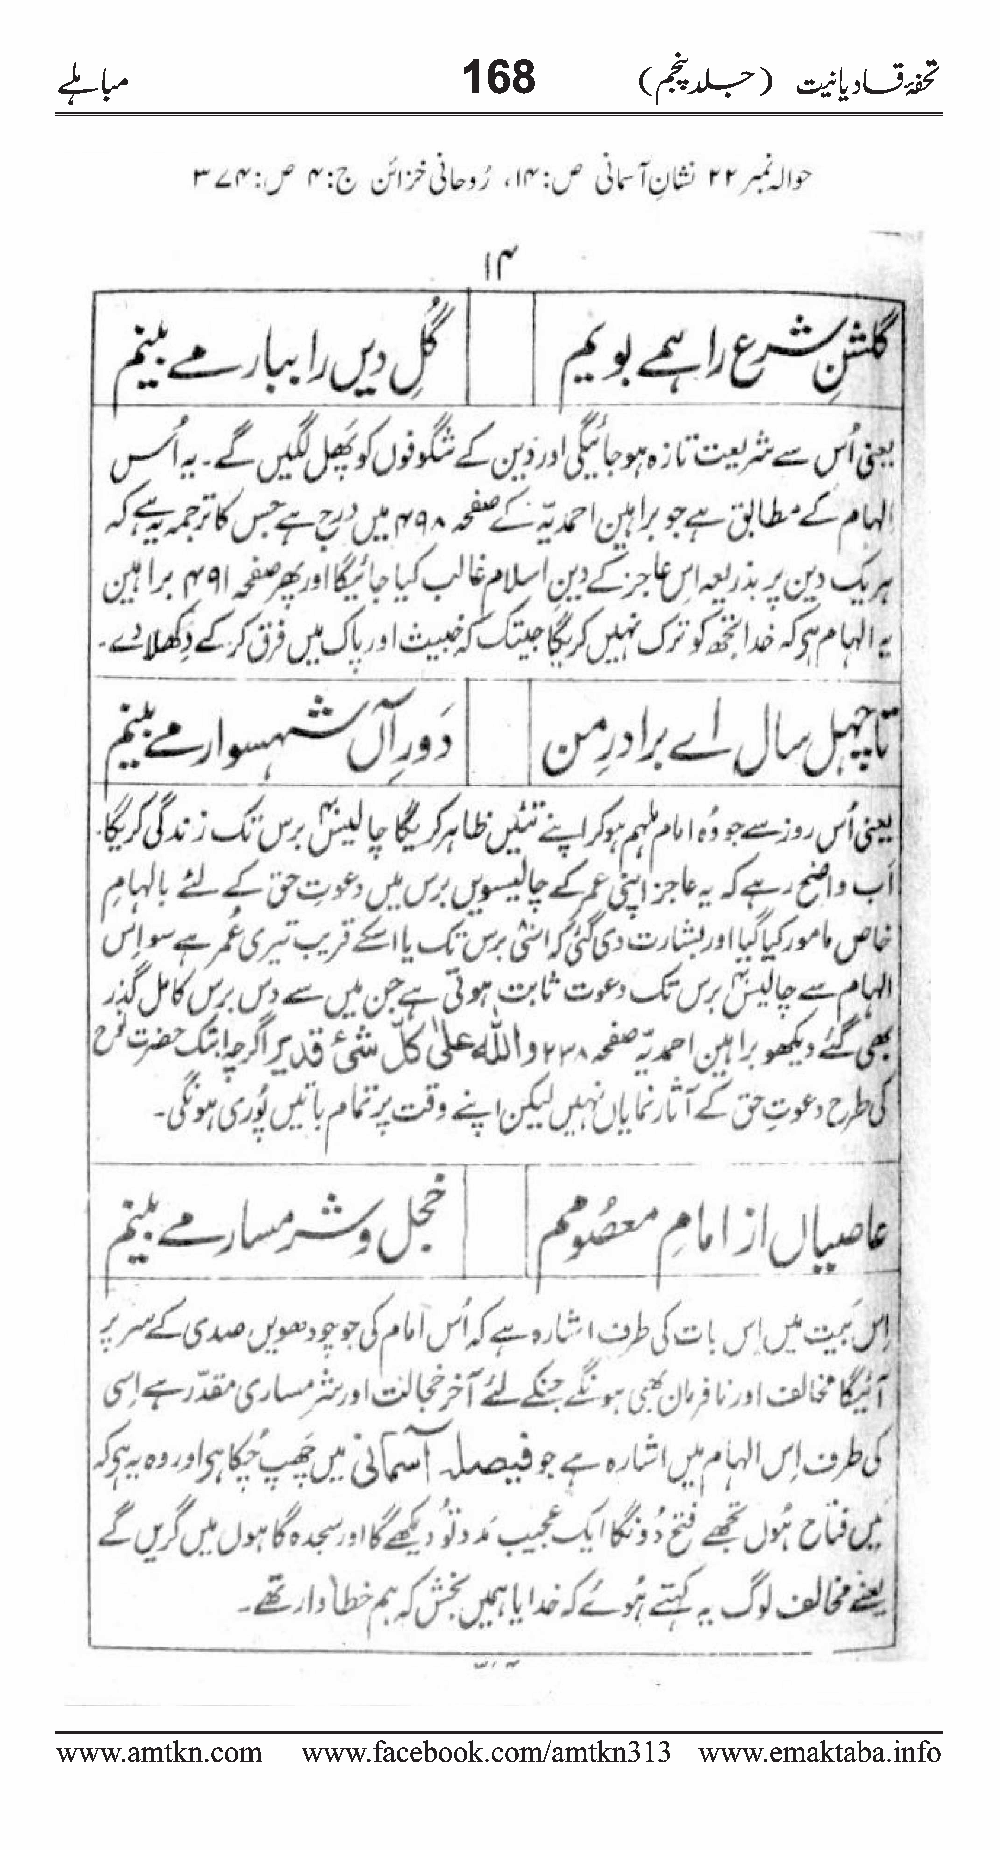 تحفۂ قادیانیت (جلد پنجم) 168 مباہلے
حوالہ نمبر ۲۲ نشانِ آسمانی ص:۱۴، رُوحانی خزائن ج:۴ ص:۳۷۴
۱۴
گلشنِ شرع را ہمے بویم گُلِ دیں را ببار مے بینم
یعنی اُس سے شریعت تازہ ہو جائیگی اور دین کے شگوفوں کو پَھل لگیں گے۔ یہ اُس
الہام کے مطابق ہے جو براہین احمدیّہ کے صفحہ ۴۹۸ میں درج ہے جس کا ترجمہ یہ ہے کہ
ہریک دین پر بذریعہ اِس عاجز کے دینِ اسلام غالب کیا جائیگا اور پھر صفحہ ۴۹۱ براہین
یہ الہام ہی کہ خدا تجھ کو ترک نہیں کریگا جبتک کہ خبیث اور پاک میں فرق کر کے دِکھلا دے۔
تا چہل سال اے برادرِ من دَورِ آں شہسوار مے بینم
یعنی اُس روز سے جو وُہ امام ملہم ہو کر اپنے تئیں ظاہر کریگا چالیس۴۰ برس تک زندگی کریگا۔
اَب واضح رہے کہ یہ عاجز اپنی عمر کے چالیسویں برس میں دعوتِ حق کے لئے بالہامِ
خاص مامور کیا گیا اور بشارت دی گئی کہ اسّی۸۰ برس تک یا اسکے قریب تیری عُمر ہے سو اِس
الہام سے چالیس۴۰ برس تک دعوت ثابت ہوتی ہے جن میں سے دس برس کامل گذر
بھی گئے دیکھو براہین احمدیّہ صفحہ ۲۳۸ واللّٰہ علیٰ کلّ شیءٍ قدیر اگرچہ ابتک حضرت نوح
کی طرح دعوتِ حق کے آثار نمایاں نہیں لیکن اپنے وقت پر تمام باتیں پُوری ہونگی۔
عاصیاں از امامِ معصُومم خجل و شرمسار مے بینم
اِس بَیت میں اِس بات کی طرف اشارہ ہے کہ اُس امام کی جو چودھویں صدی کے سر پر
آئیگا مخالف اور نافرمان بھی ہونگے جنکے لئے آخر خجالت اور شرمساری مقدّر ہے اِسی
کی طرف اِس الہام میں اشارہ ہے جو فیصلہ آسمانی میں چَھپ چُکا ہی اور وہ یہ ہی کہ
میں فتاح ہُوں تجھے فتح دُونگا ایک عجیب مدد تُو دیکھے گا اور سجدہ گاہوں میں گریں گے
یعنے مخالف لوگ یہ کہتے ہُوئے کہ خدایا ہمیں بخش کہ ہم خطاوار تھے۔
www.amtkn.com www.facebook.com/amtkn313 www.emaktaba.info